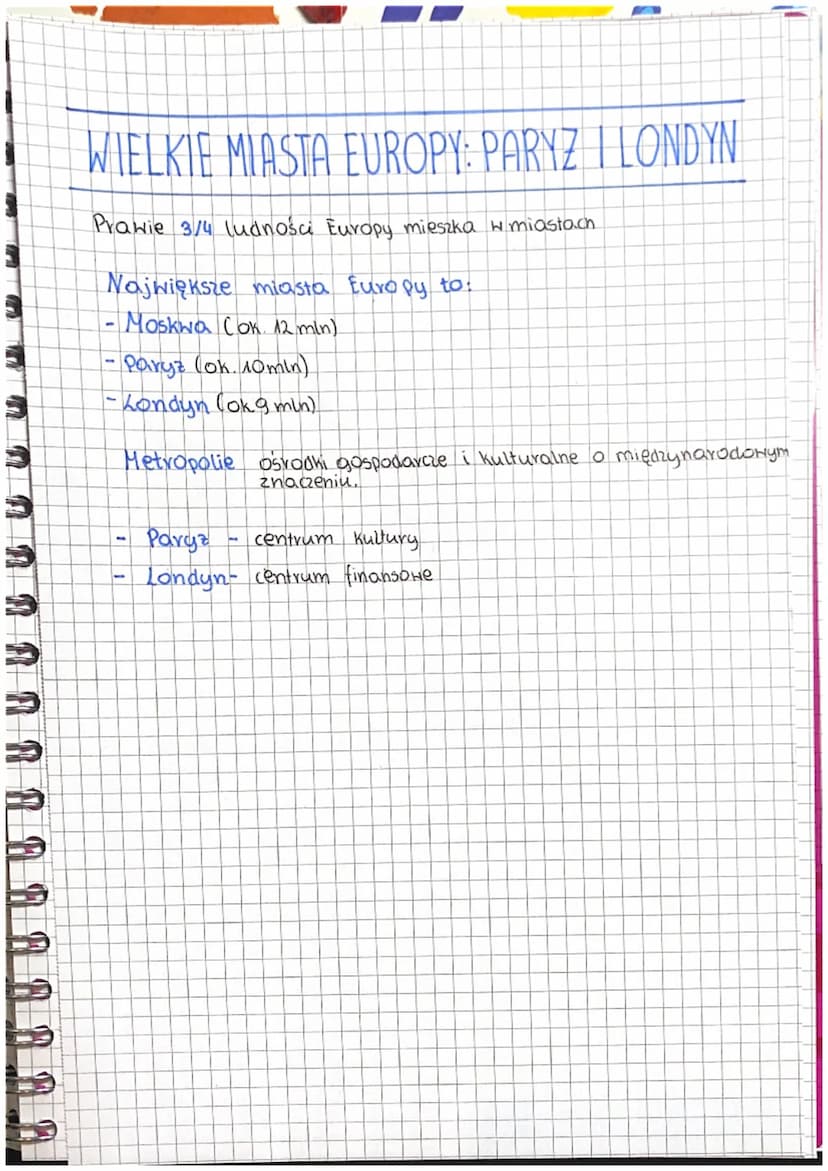 WIELKIE MIASTA EUROPY: PARYŻ I LONDYN
Prawie 3/4 ludności Europy mieszka w miastach
Największe miasta Europy to:
- Moskwa (ok. 12 mln)
- Paryż (ok. 10 mln)
- Londyn (ok 9 mln)
Metropolie ośrodki gospodarcze i kulturalne o międzynarodowym
znaczeniu.
- Paryż - centrum kultury
- Londyn- centrum finansowe